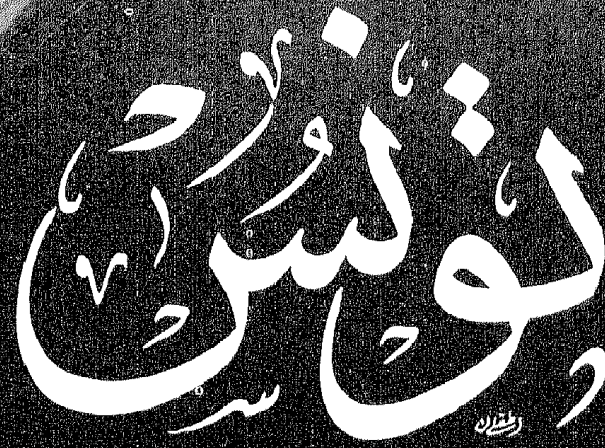 تونس